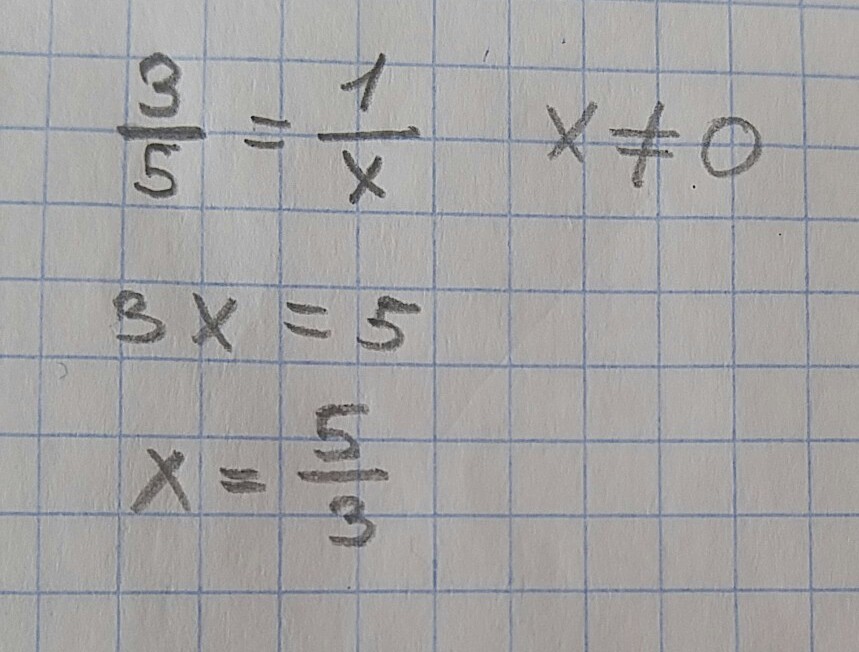 3/5 = 1/x x ≠ 0
3x = 5
x = 5/3